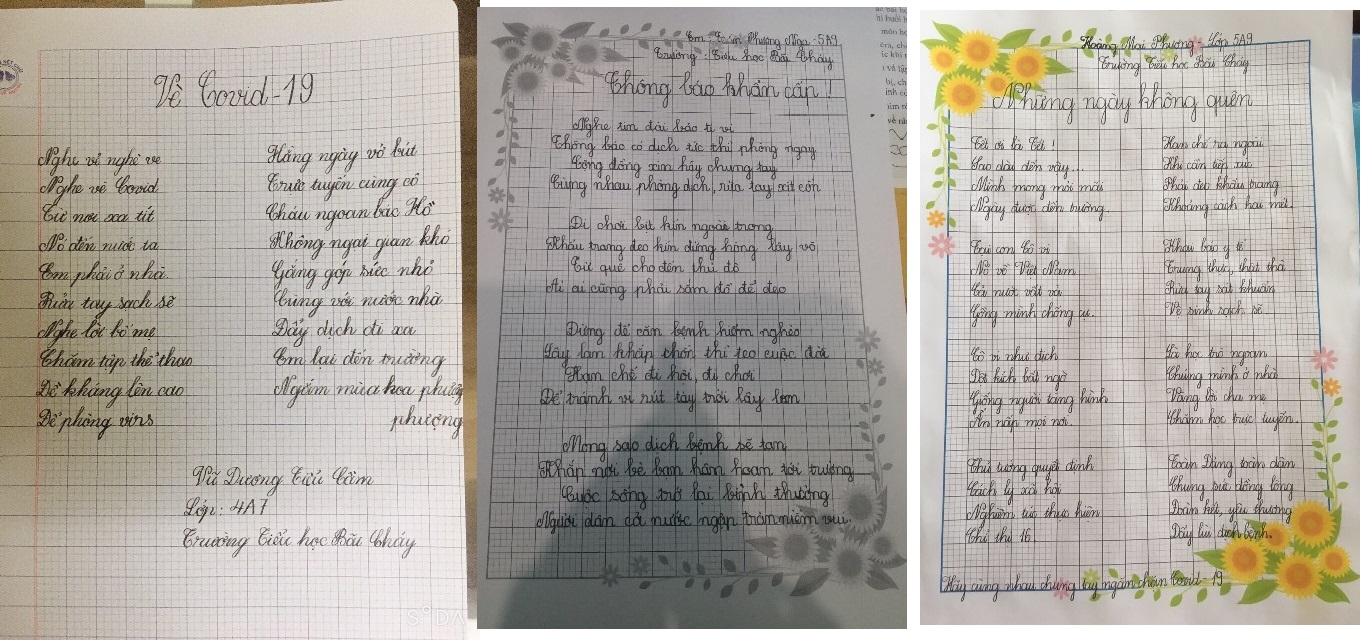 Vè Covid-19
Nghe vẻ nghe ve
Nghe vè Covid
Từ nơi xa tít
Nó đến nước ta
Em phải ở nhà
Rửa tay sạch sẽ
Nghe lời bố mẹ
Chăm tập thể thao
Đề kháng lên cao
Đề phòng virs
Hằng ngày vở bút
Trực tuyến cùng cô
Cháu ngoan bác Hồ
Không ngại gian khó
Gắng góp sức nhỏ
Cùng với nước nhà
Đẩy dịch đi xa
Em lại đến trường
Ngắm mùa hoa phượng
phượng
Vũ Dương Tiểu Cầm
Lớp: 4A7
Trường Tiểu học Bãi Cháy
Phương Nga - 5A9
Trường: Tiểu học Bãi Cháy
Thông báo khẩn cấp!
Nghe tin đài báo ti vi
Thông báo có dịch tức thì phòng ngay
Cộng đồng xin hãy chung tay
Cùng nhau phòng dịch, rửa tay xịt cồn
Đi chơi bịt kín ngoài trong
Khẩu trang đeo kín đừng hòng lây vô
Từ quê cho đến thủ đô
Ai ai cũng phải sắm đồ để đeo
Đừng để căn bệnh hiểm nghèo
Lây lan khắp chốn thì teo cuộc đời
Hạn chế đi hỏi, đi chơi
Để tránh vi rút tày trời lây lan
Mong sao dịch bệnh sẽ tan
Khắp nơi bè bạn hân hoan tới trường
Cuộc sống trở lại bình thường
Người dân cả nước ngập tràn niềm vui.
Hoàng Mai Phương - Lớp 5A9
Trường Tiểu học Bãi Cháy
Những ngày không quên
Tết ơi là Tết!
Sao dài đến vậy...
Mình mong mỏi mãi
Ngày được đến trường.
Tại con Cô vi
Nó về Việt Nam
Cả nước vất vả
Gồng mình chống cự.
Cô vi như địch
Đột kích bất ngờ
Giống người tàng hình
Ẩn nấp mọi nơi.
Thủ tướng quyết định
Cách ly xã hội
Nghiêm túc thực hiện
Chỉ thị 16.
Hạn chế ra ngoài
Khi cần tiếp xúc
Phải đeo khẩu trang
Khoảng cách hai mét.
Khai báo y tế
Trung thực, thật thà
Rửa tay sát khuẩn
Vệ sinh sạch sẽ.
Là học trò ngoan
Chúng mình ở nhà
Vâng lời cha mẹ
Chăm học trực tuyến.
Toàn Đảng toàn dân
Chung sức đồng lòng
Đoàn kết, yêu thương
Đẩy lùi dịch bệnh.
Hãy cùng nhau chung tay ngăn chặn Covid-19